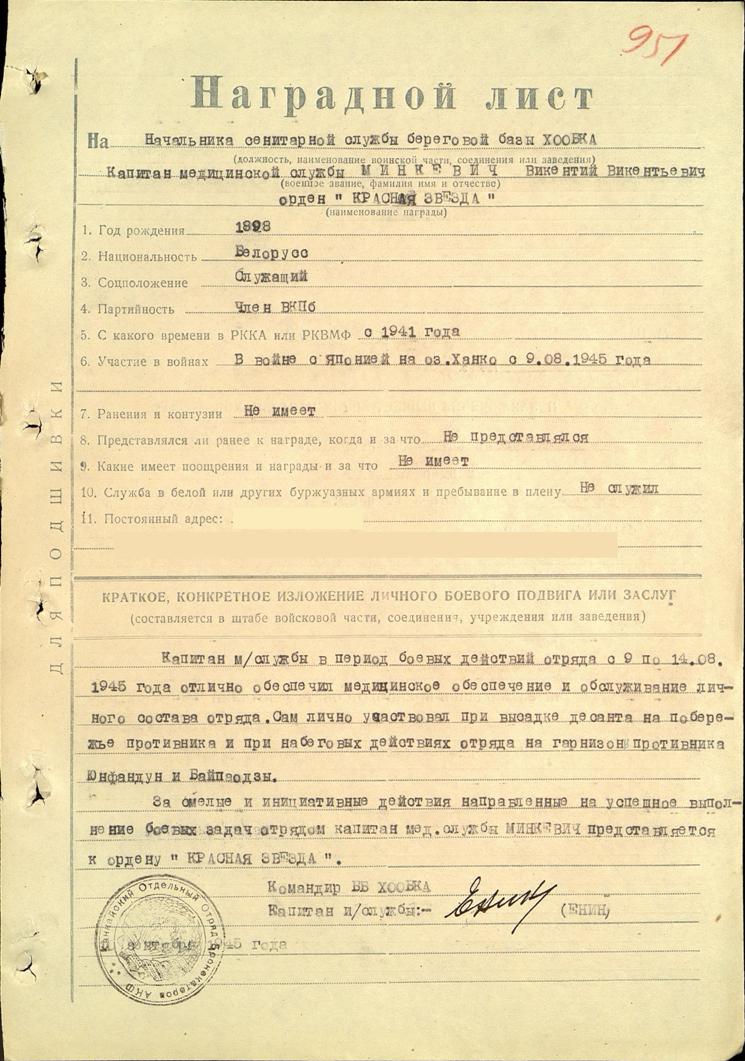 951
Наградной лист
На Начальника сенитарной службы береговой базы ХООБКА
(должность, наименование воинской части, соединения или заведения)
Капитан медицинской службы МИНКЕВИЧ Викентий Викентьевич
(военное звание, фамилия имя и отчество)
орден " КРАСНАЯ ЗВЕЗДА "
(наименование награды)
1. Год рождения 1898
2. Национальность Белорусс
3. Соцположение Служащий
4. Партийность Член ВКПб
5. С какого времени в РККА или РКВМФ с 1941 года
6. Участие в войнах В войне с Японией на оз.Ханко с 9.08.1945 года
7. Ранения и контузии Не имеет
8. Представлялся ли ранее к награде, когда и за что Не представлялся
9. Какие имеет поощрения и награды и за что Не имеет
10. Служба в белой или других буржуазных армиях и пребывание в плену Не служил
11. Постоянный адрес:
ДЛЯ ПОДШИВКИ
КРАТКОЕ, КОНКРЕТНОЕ ИЗЛОЖЕНИЕ ЛИЧНОГО БОЕВОГО ПОДВИГА ИЛИ ЗАСЛУГ
(составляется в штабе войсковой части, соединения, учреждения или заведения)
Капитан м/службы в период боевых действий отряда с 9 по 14.08.
1945 года отлично обеспечил медицинское обеспечение и обслуживание лич-
ного состава отряда.Сам лично участвовал при высадке десанта на побере-
жье противника и при набеговых действиях отряда на гарнизон противника
Юнфандун и Байпаодзы.
За смелые и инициативные действия направленные на успешное выпол-
нение боевых задач отрядом капитан мед.службы МИНКЕВИЧ представляется
к ордену " КРАСНАЯ ЗВЕЗДА ".
Командир ББ ХООБКА
Капитан и/службы:- (ЕНИН)
сентября 1945 года
Ханкайский Отдельный Отряд Бронекатеров АКФ